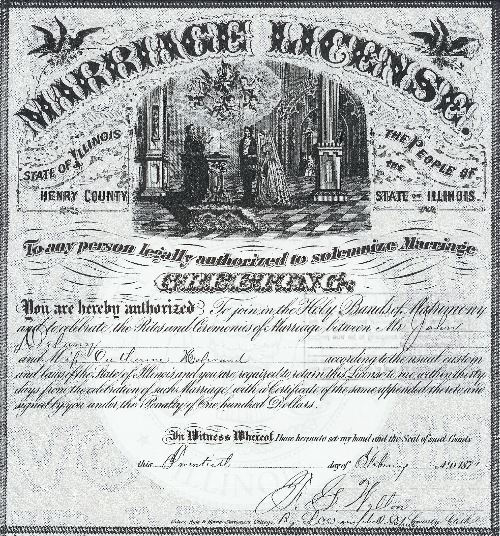 MARRIAGE LICENSE.
STATE OF ILLINOIS
HENRY COUNTY
THE PEOPLE OF
THE
STATE OF ILLINOIS.
To any person legally authorized to solemnize Marriage
GREETING.
You are hereby authorized To join in the Holy Bands of Matrimony
and to celebrate the Rites and Ceremonies of Marriage between Mr. John
and M Catherine according to the usual custom
and Laws of the State of Illinois and you are required to return this License to me within thirty
days from the celebration of such Marriage, with a Certificate of the same appended thereto and
signed by you under the Penalty of One hundred Dollars.
In Witness Whereof I have hereunto set my hand and the Seal of said County
this Twentieth day of February A.D. 187
County Clerk